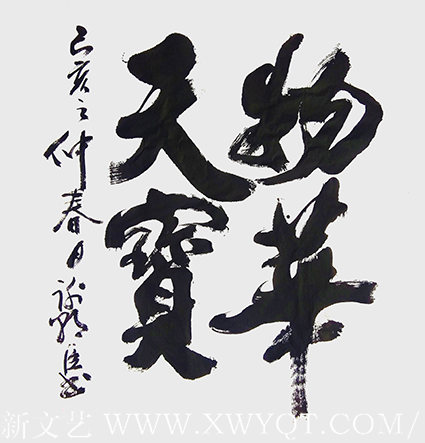 物華
天寶
己亥之仲春月
新文艺 WWW.XWYQT.COM/